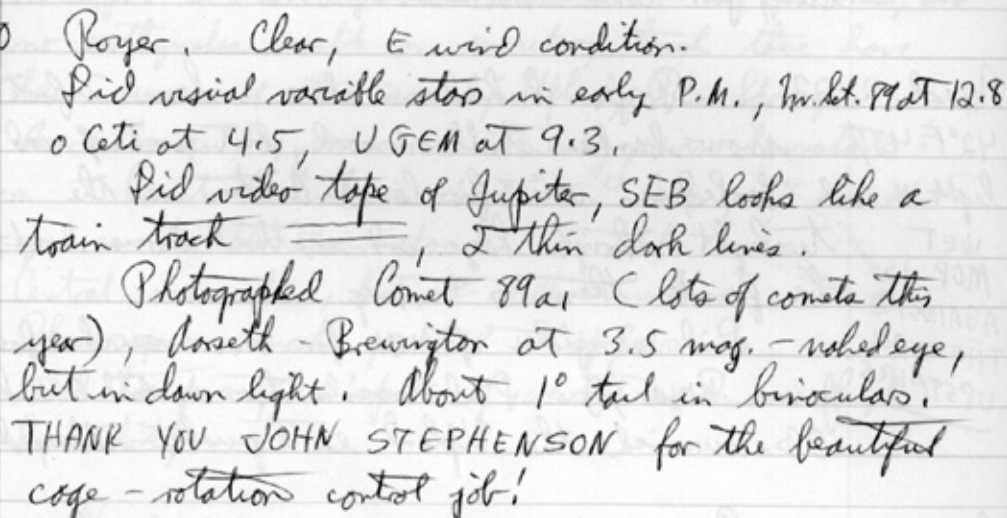 Royer. Clear, E wind condition.
Did visual variable stars in early P.M., 89 at 12.8
o Ceti at 4.5, U GEM at 9.3.
Did video tape of Jupiter, SEB looks like a
train track, 2 thin dark lines.
Photographed Comet 89a, (lots of comets this
year), Aarseth - Brewington at 3.5 mag. - naked eye,
but in dawn light. About 1° tail in binoculars.
THANK YOU JOHN STEPHENSON for the beautiful
cage - rotation control job!